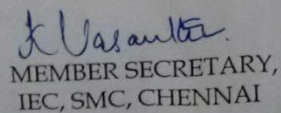 K Vasantha.
MEMBER SECRETARY,
IEC, SMC, CHENNAI